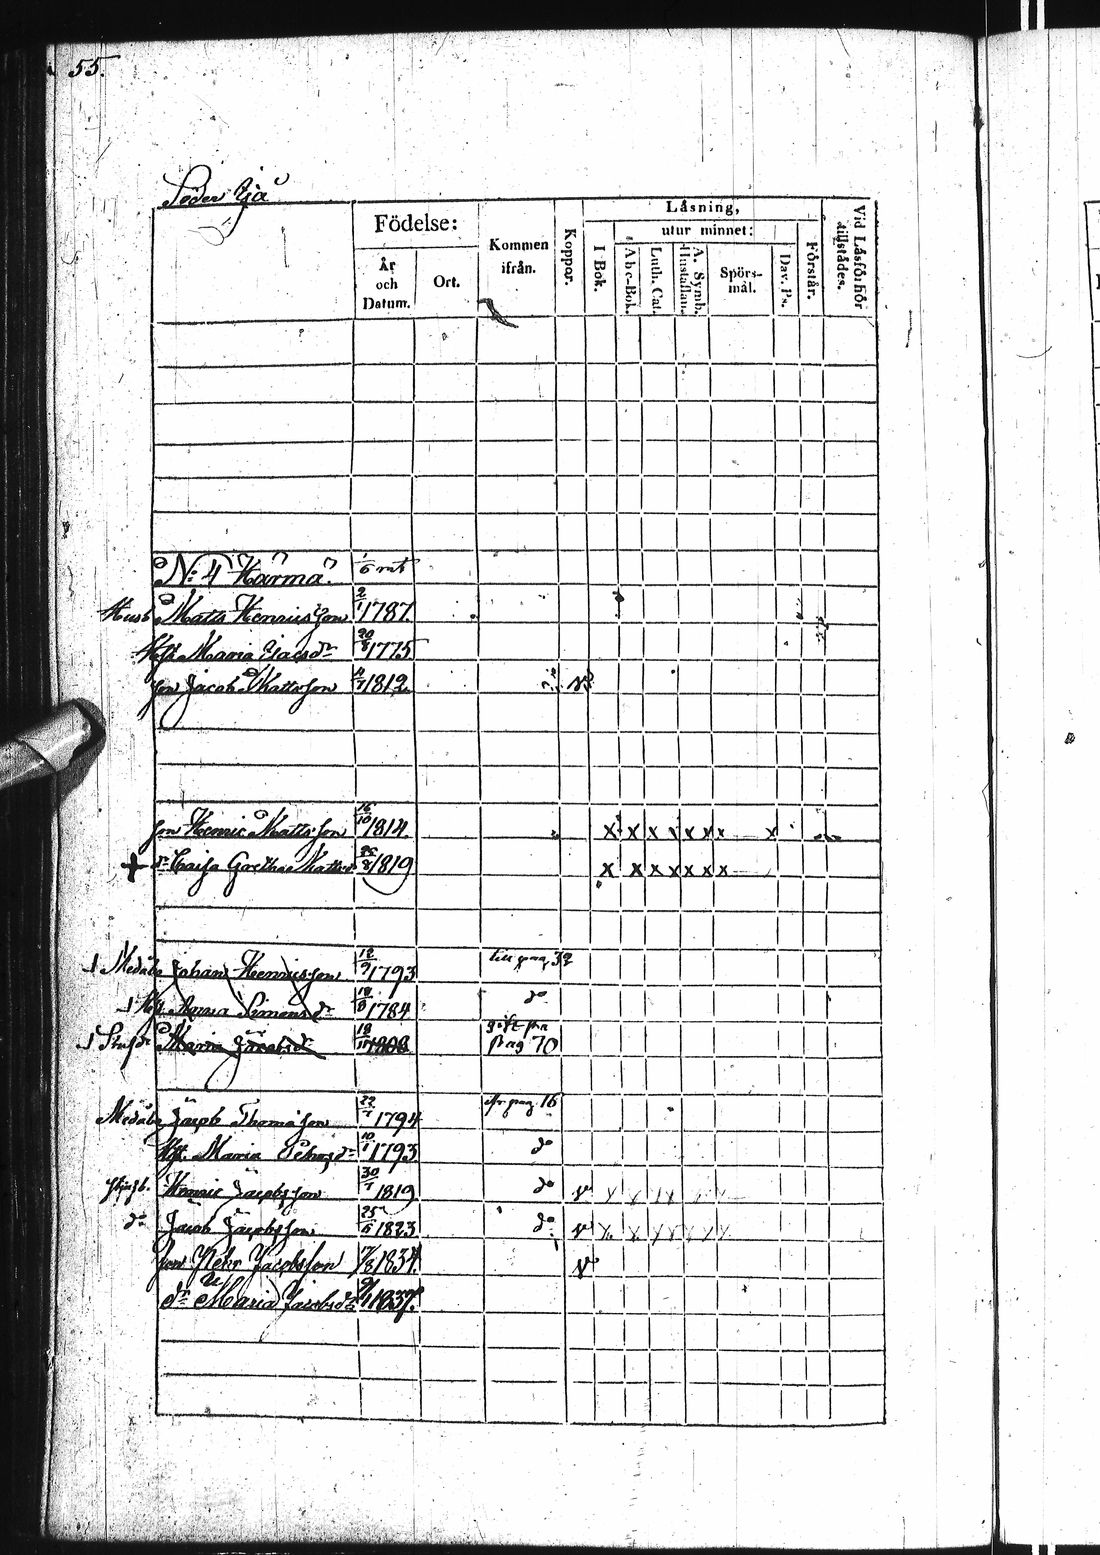 55.
Söder Yjä
Födelse:
År och Datum.
Ort.
Kommen ifrån.
Koppor.
Läsning,
utur minnet:
I Bok.
Abc-Bok.
Luth. Cat.
A. Symb. Hustaflan.
Spörs-mål.
Dav. Ps.
Förstår.
Vid Läsförhör tillstädes.
No: 4 Härmä. 1/6 mtl
Husb. Matts Henricsson 2/1 1787.
Hst. Maria Isacsdr 20/8 1775
Son Jacob Mattsson 4/7 1812. v
Son Henric Mattsson 16/10 1814. x x x x x x x x
+ dr Caisa Gretha Mattsdr 25/8 1819 x x x x x x x
Medåb. Johan Henricsson 12/9 1793 till pag 32
Hst. Anna Simonsdr 18/8 1784 do
Maria Jacobsdr 18/11 1808 pag 70
Medåb. Jacob Thomasson 22/7 1794 fr pag 16
Hst. Maria 10/1 1793 do
Henric Jacobsson 30/7 1819 do v x x x x x x
do Jacob Jacobsson 25/5 1823 do v x x x x x x x
Son Pehr Jacobsson 7/8 1834. v
dr Maria Jacobsdr 9/1 1837.